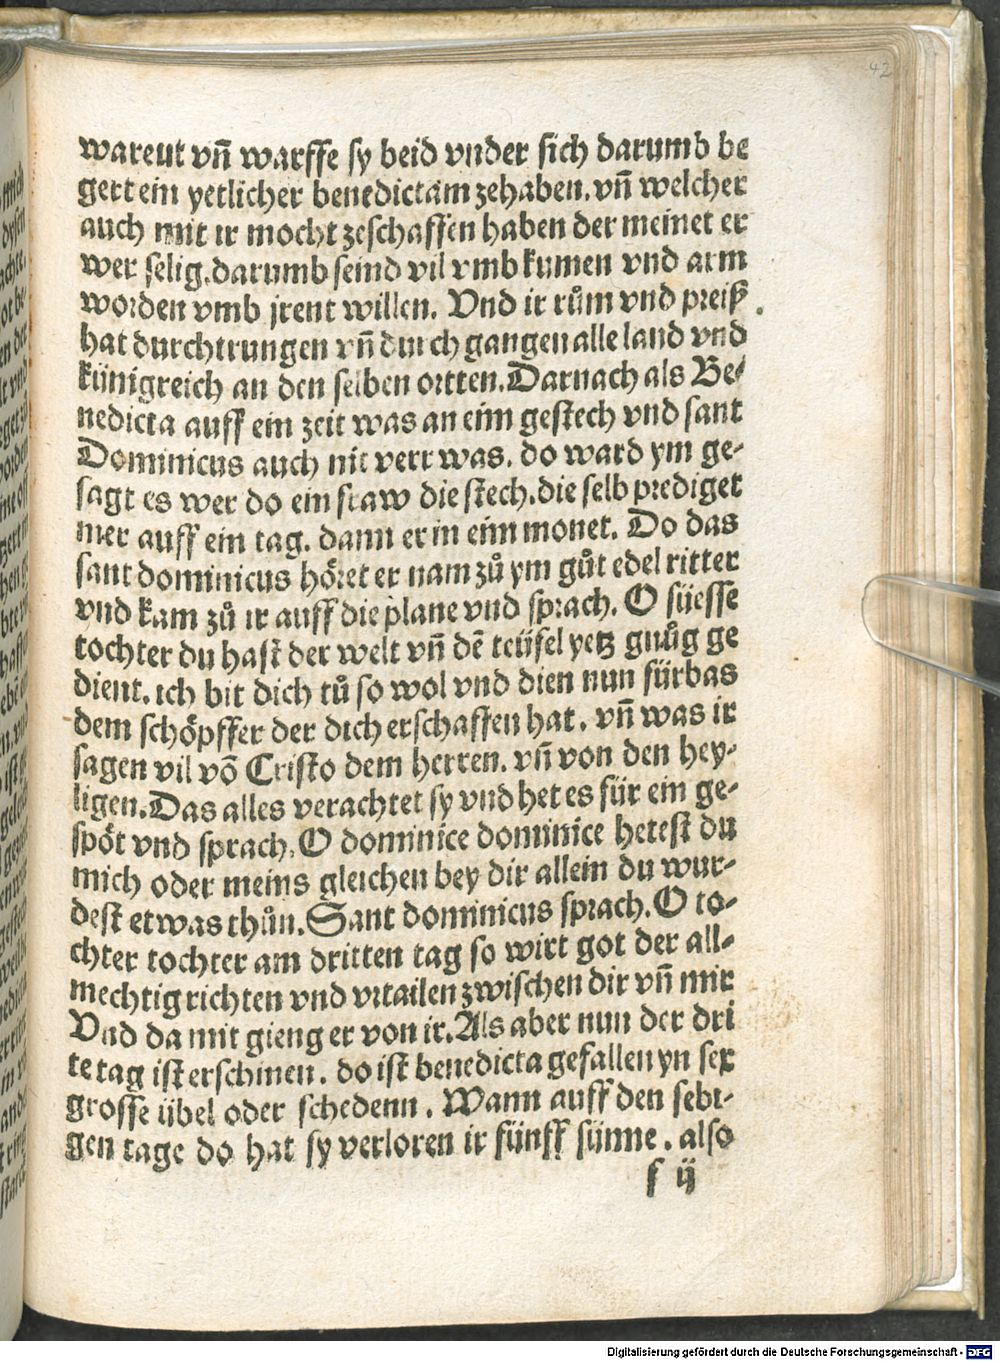 42
warent vn̄ warffe sy beid vnder sich darumb be
gert ein yetlicher benedictam zehaben. vn̄ welcher
auch mit ir mocht zeschaffen haben der meinet er
wer selig. darumb seind vil vmb kumen vnd arm
worden vmb jrent willen. Vnd ir rům vnd preiß
hat durchtrungen vn̄ durch gangen alle land vnd
künigreich an den selben ortten. Darnach als Be⸗
nedicta auff ein zeit was an eim gestech vnd sant
Dominicus auch nit verr was. do ward ym ge⸗
sagt es wer do ein fraw die stech. die selb prediget
mer auff ein tag. dann er in eim monet. Do das
sant dominicus höret er nam zů ym gůt edel ritter
vnd kam zů ir auff die plane vnd sprach. O süesse
tochter du hast der welt vn̄ dē teüfel yetz gnůg ge
dient. ich bit dich tů so wol vnd dien nun fürbas
dem schöpffer der dich erschaffen hat. vn̄ was ir
sagen vil vō Cristo dem herren. vn̄ von den hey⸗
ligen. Das alles verachtet sy vnd het es für ein ge⸗
spöt vnd sprach. O dominice dominice hetest du
mich oder meins gleichen bey dir allein du wur⸗
dest etwas thůn. Sant dominicus sprach. O to⸗
chter tochter am dritten tag so wirt got der all⸗
mechtig richten vnd vrtailen zwischen dir vn̄ mir
Vnd da mit gieng er von ir. Als aber nun der dri
te tag ist erschinen. do ist benedicta gefallen yn sex
grosse übel oder schedenn. Wann auff den sebt⸗
gen tage do hat sy verloren ir fünff sünne. also
f ij
Digitalisierung gefördert durch die Deutsche Forschungsgemeinschaft - DFG